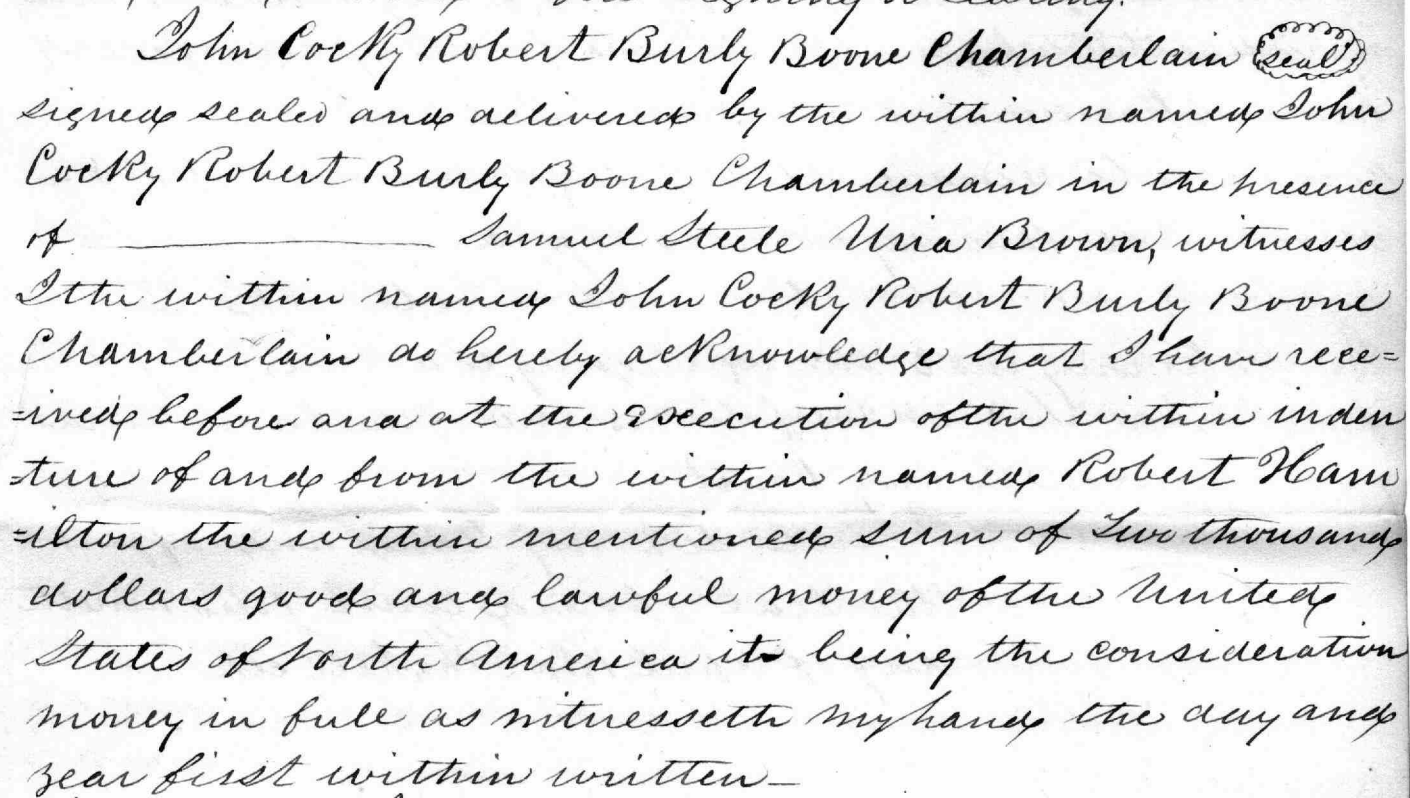 signing & sealing.
John Cocky Robert Burly Boone Chamberlain seal
signed sealed and delivered by the within named John
Cocky Robert Burly Boone Chamberlain in the presence
of ———— Samuel Steele Uria Brown, witnesses
I the within named John Cocky Robert Burly Boone
Chamberlain do hereby acknowledge that I have rece=
=ived before and at the execution of the within inden
=ture of and from the within named Robert Ham
=ilton the within mentioned sum of Two thousand
dollars good and lawful money of the United
States of North America it being the consideration
money in full as witnesseth my hand the day and
year first within written —